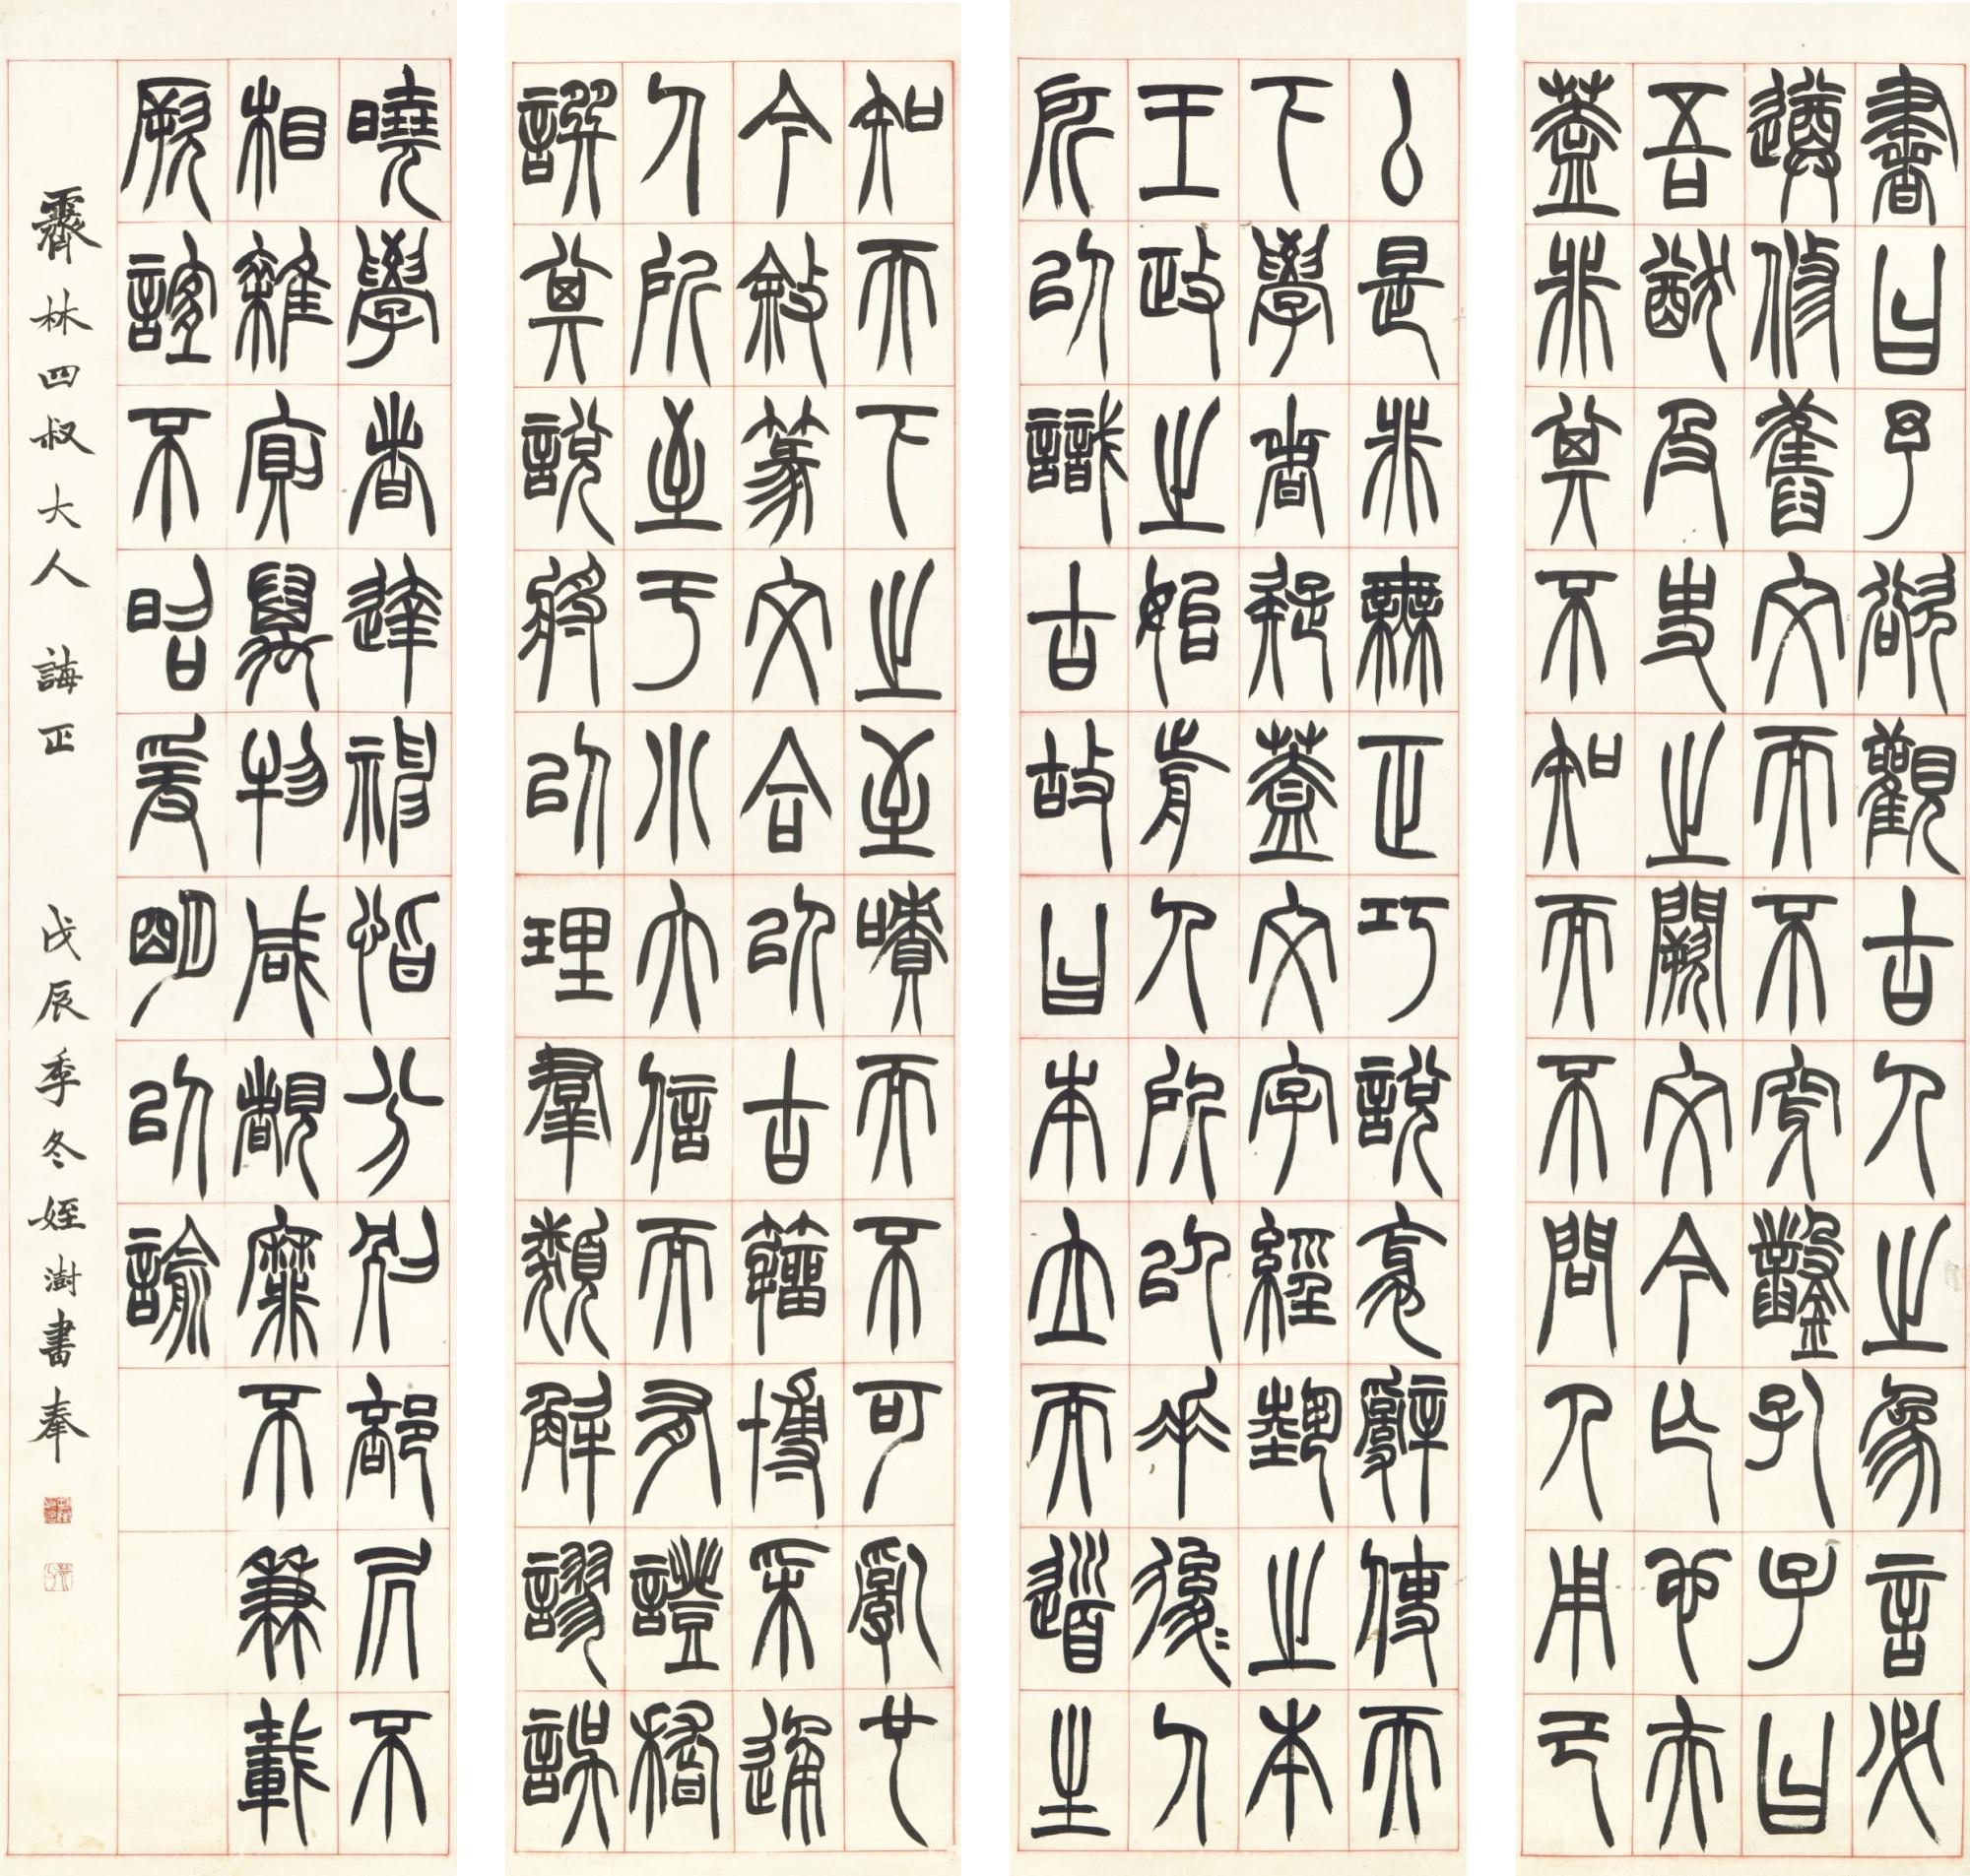 書曰予欲觀古人之象言必
遵修舊文而不穿鑿孔子曰
吾猶及史之闕文今亡也夫
蓋非其不知而不問人用己
厶是非無正巧說衺辭使天
下學者疑蓋文字經藝之本
王政之始前人所以垂後人
所以識古故曰本立而道生
知天下之至嘖而不可亂也
今敘篆文合以古籀博采通
人所至于小大信而有證稽
譔其說將以理羣類解謬誤
曉學者達神恉分別部居不
相雜廁萬物咸覩靡不兼載
厥誼不昭爰明以諭
霽林四叔大人 誨正 戊辰季冬姪澍書奉